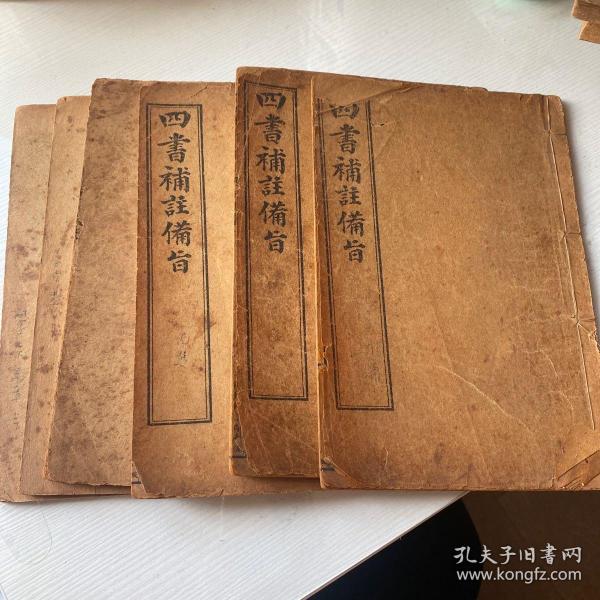 四書補註備旨
四書補註備旨
四書補註備旨
孔夫子旧书网
www.kongfz.com